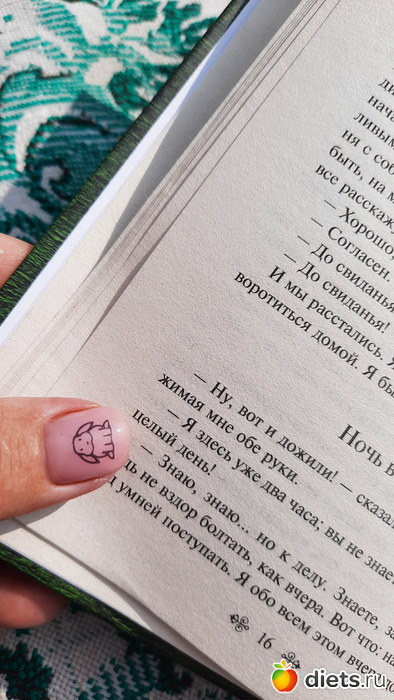 нача
ливым
ня с соб
быть, на м
все расскаж
— Хорошо
— Согласен.
— До свиданья
— До свиданья!
И мы расстались. Я
воротиться домой. Я бы
Ночь в
— Ну, вот и дожили! — сказал
жимая мне обе руки.
— Я здесь уже два часа; вы не знает
целый день!
— Знаю, знаю... но к делу. Знаете, за
ь не вздор болтать, как вчера. Вот что: на
умней поступать. Я обо всем этом вчера
16
diets.ru